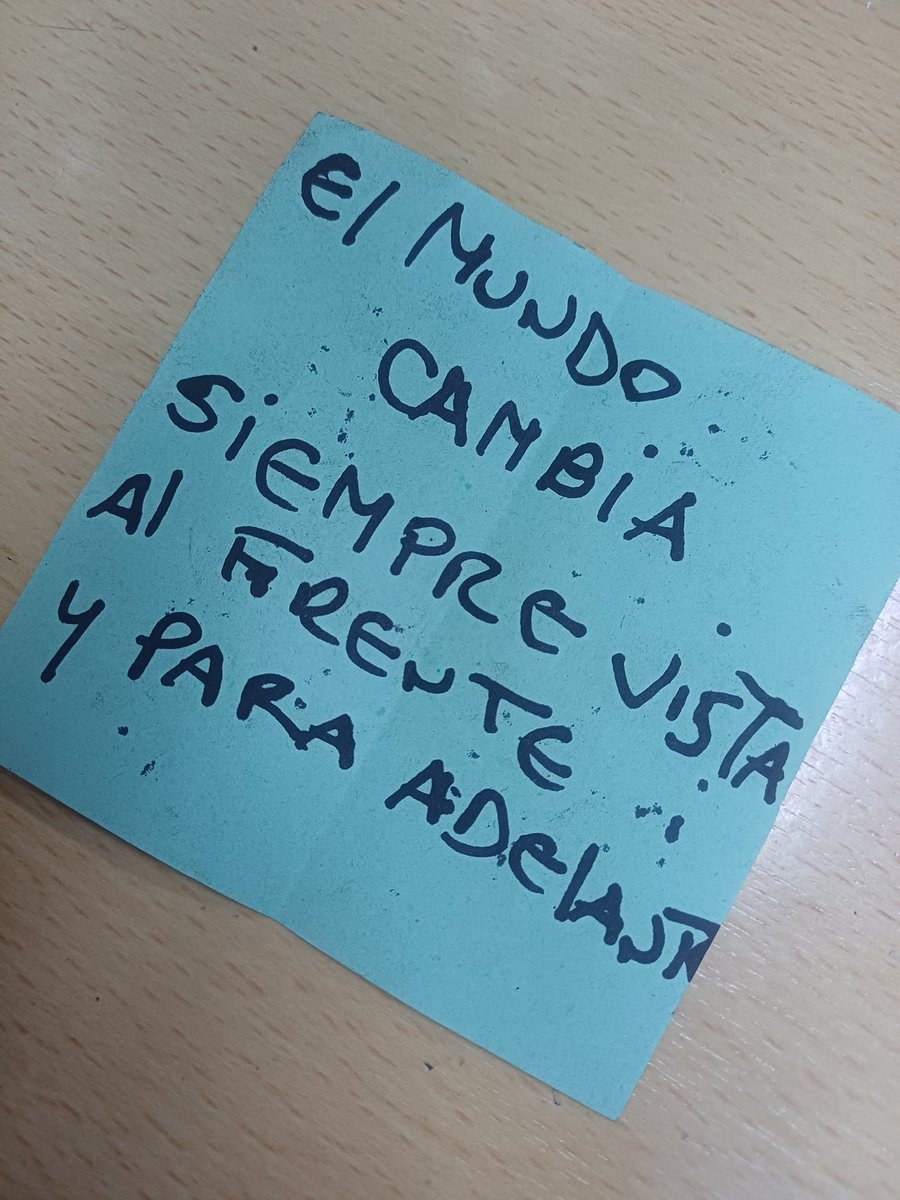 El MUNDO
CAMBiA.
SiEMPRE VISTA
Al FRENTE
Y PARA ADElANT